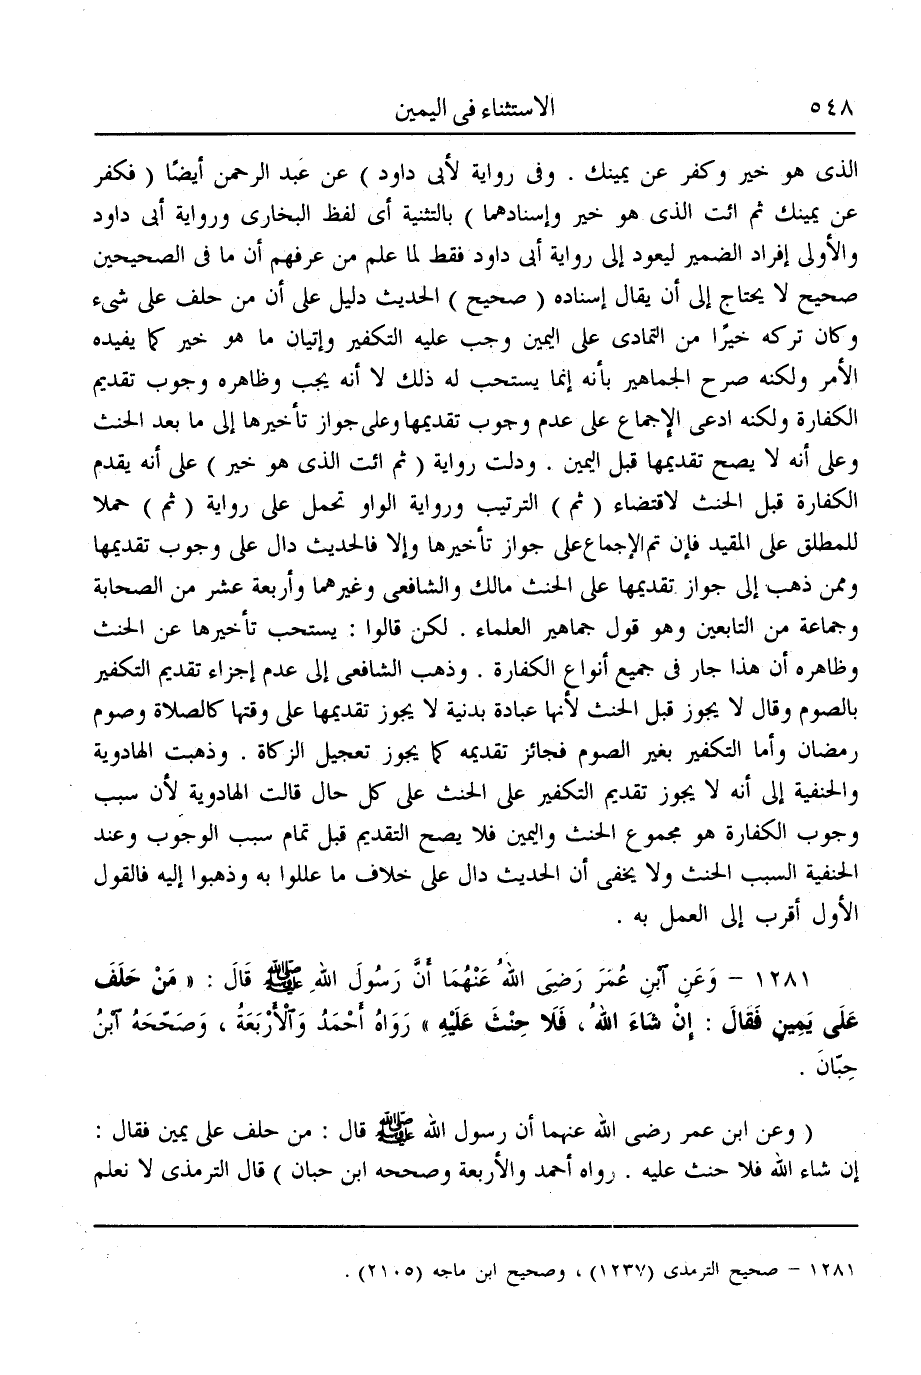 ٥٤٨ الاستثناء فى اليمين
الذى هو خير وكفر عن يمينك . وفى رواية لأبى داود ) عن عبد الرحمن أيضًا ( فكفر
عن يمينك ثم ائت الذى هو خير وإسنادهما ) بالتثنية أى لفظ البخارى ورواية أبى داود
والأولى إفراد الضمير ليعود إلى رواية أبى داود فقط لما علم من عرفهم أن ما فى الصحيحين
صحيح لا يحتاج إلى أن يقال إسناده ( صحيح ) الحديث دليل على أن من حلف على شىء
وكان تركه خيرًا من التمادى على اليمين وجب عليه التكفير وإتيان ما هو خير كما يفيده
الأمر ولكنه صرح الجماهير بأنه إنما يستحب له ذلك لا أنه يجب وظاهره وجوب تقديم
الكفارة ولكنه ادعى الإجماع على عدم وجوب تقديمها وعلى جواز تأخيرها إلى ما بعد الحنث
وعلى أنه لا يصح تقديمها قبل اليمين . ودلت رواية ( ثم ائت الذى هو خير ) على أنه يقدم
الكفارة قبل الحنث لاقتضاء ( ثم ) الترتيب ورواية الواو تحمل على رواية ( ثم ) حملا
للمطلق على المقيد فإن تم الإجماع على جواز تأخيرها وإلا فالحديث دال على وجوب تقديمها
وممن ذهب إلى جواز تقديمها على الحنث مالك والشافعى وغيرهما وأربعة عشر من الصحابة
وجماعة من التابعين وهو قول جماهير العلماء . لكن قالوا : يستحب تأخيرها عن الحنث
وظاهره أن هذا جار فى جميع أنواع الكفارة . وذهب الشافعى إلى عدم إجزاء تقديم التكفير
بالصوم وقال لا يجوز قبل الحنث لأنها عبادة بدنية لا يجوز تقديمها على وقتها كالصلاة وصوم
رمضان وأما التكفير بغير الصوم فجائز تقديمه كما يجوز تعجيل الزكاة . وذهبت الهادوية
والحنفية إلى أنه لا يجوز تقديم التكفير على الحنث على كل حال قالت الهادوية لأن سبب
وجوب الكفارة هو مجموع الحنث واليمين فلا يصح التقديم قبل تمام سبب الوجوب وعند
الحنفية السبب الحنث ولا يخفى أن الحديث دال على خلاف ما عللوا به وذهبوا إليه فالقول
الأول أقرب إلى العمل به .
١٢٨١ – وَعَنِ آبْنِ عُمَرَ رَضِىَ اللهُ عَنْهُمَا أَنَّ رَسُولَ اللهِ ﷺ قَالَ : « مَنْ حَلَفَ
عَلَى يَمِينٍ فَقَالَ : إِنْ شَاءَ اللهُ ، فَلَا حِنْثَ عَلَيْهِ » رَوَاهُ أَحْمَدُ وَآلْأَرْبَعَةُ ، وَصَحَّحَهُ آبْنُ
حِبّانَ .
( وعن ابن عمر رضى الله عنهما أن رسول الله ﷺ قال : من حلف على يمين فقال :
إن شاء الله فلا حنث عليه . رواه أحمد والأربعة وصححه ابن حبان ) قال الترمذى لا نعلم
١٢٨١ – صحيح الترمذى (١٢٣٧) ، وصحيح ابن ماجه (٢١٠٥) .